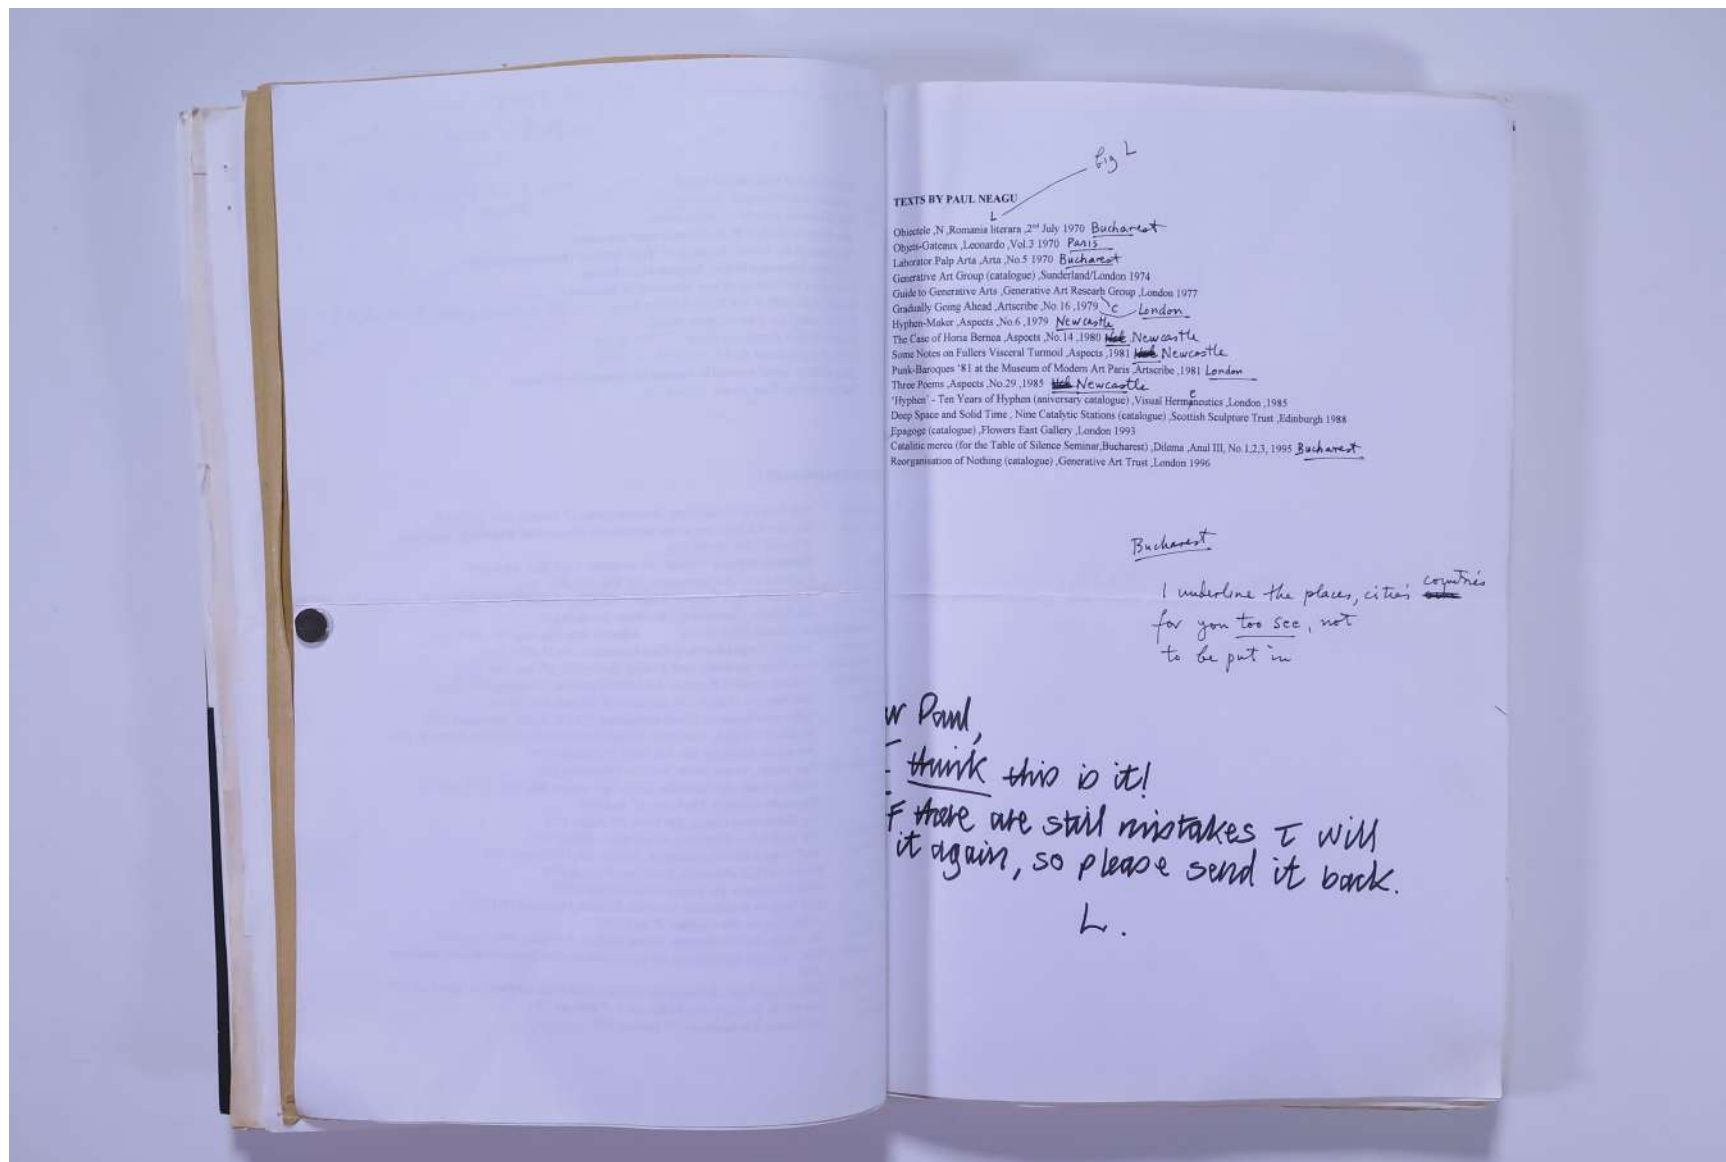 big L
TEXTS BY PAUL NEAGU
L
Obiectele ,N ,Romania literara ,2nd July 1970 Bucharest
Objets-Gateaux ,Leonardo ,Vol.3 1970 Paris
Laborator.Palp Arta ,Arta ,No.5 1970 Bucharest
Generative Art Group (catalogue) ,Sunderland/London 1974
Guide to Generative Arts ,Generative Art Researh Group ,London 1977
Gradually Going Ahead ,Artscribe ,No.16 ,1979 c London
Hyphen-Maker ,Aspects ,No.6 ,1979 Newcastle
The Case of Horia Bernea ,Aspects ,No.14 ,1980 Newcastle
Some Notes on Fullers Visceral Turmoil ,Aspects ,1981 Newcastle
Punk-Baroques '81 at the Museum of Modern Art Paris ,Artscribe ,1981 London
Three Poems ,Aspects ,No.29 ,1985 Newcastle
e
'Hyphen' - Ten Years of Hyphen (aniversary catalogue) ,Visual Hermaneutics ,London ,1985
Deep Space and Solid Time , Nine Catalytic Stations (catalogue) ,Scottish Sculpture Trust ,Edinburgh 1988
Epagoge (catalogue) ,Flowers East Gallery ,London 1993
Catalitic mereu (for the Table of Silence Seminar,Bucharest) ,Dilema ,Anul III, No.1,2,3, 1995 Bucharest
Reorganisation of Nothing (catalogue) ,Generative Art Trust ,London 1996
Bucharest
I underline the places, cities countries
for you too see, not
to be put in
Paul,
think this is it!
there are still mistakes I will
it again, so please send it back.
L.